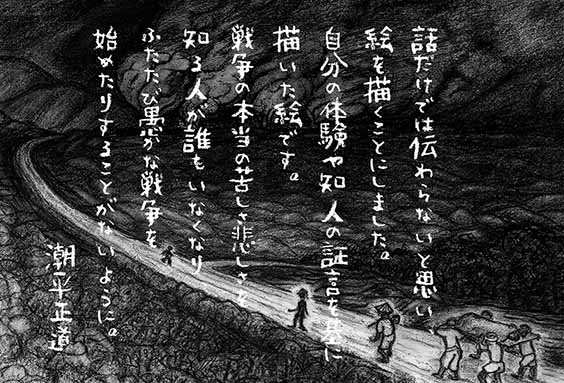 話だけでは伝わらないと思い、
絵を描くことにしました。
自分の体験や知人の証言を基に
描いた絵です。
戦争の本当の苦しさ悲しさを
知る人が誰もいなくなり
ふたたび愚かな戦争を
始めたりすることがないように。
潮平正道